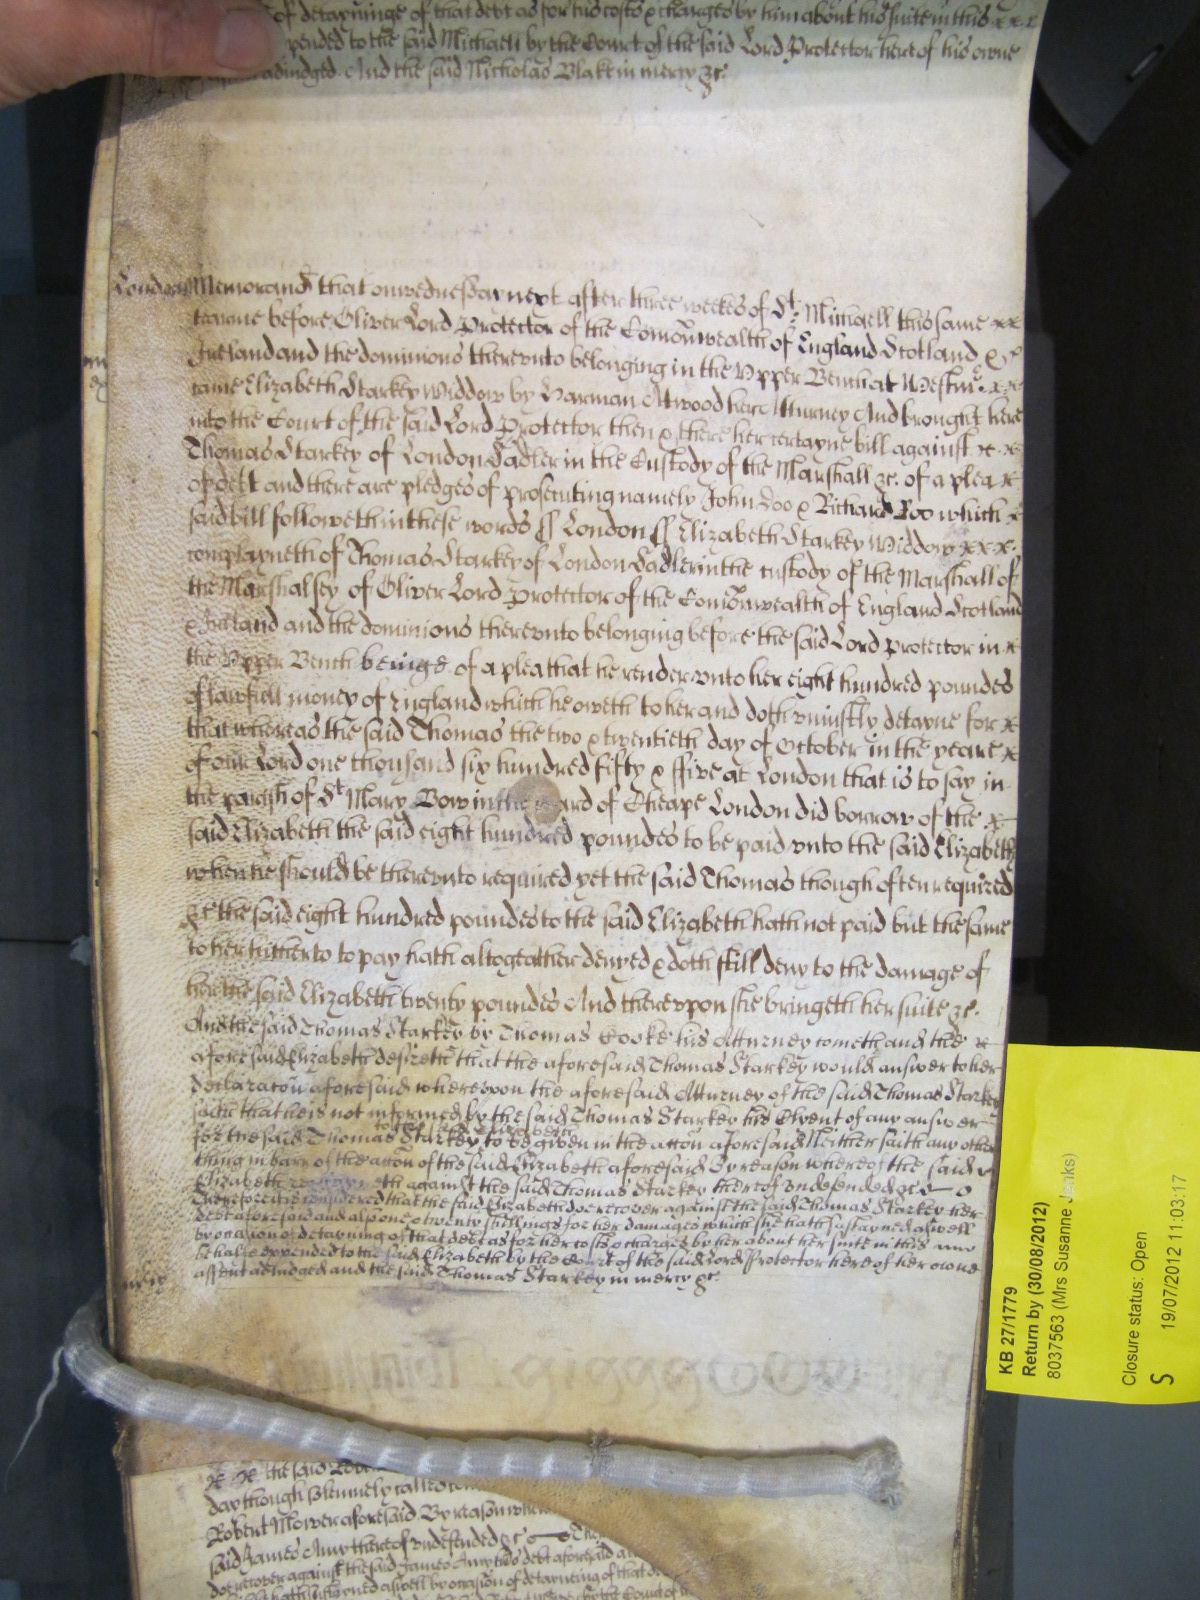 of detayninge of that debt as for his costs & charges by him about his suite in this
pended to the said Michaell by the Court of the said Lord Protector here of his owne
adiudged And the said Nicholas Blake in mercy &c.
London Memorand that on wednesday next after three weekes of St. Michaell this same
tearme before Oliver Lord Protector of the Comonwealth of England Scotland &
Ireland and the dominions therevnto belonging in the Vpper Bench at Westmr.
came Elizabeth Starkey Widdow by Harman Atwood here Atturney And brought here
into the Court of the said Lord Protector then & there her certayne bill against
Thomas Starkey of London Sadler in the Custody of the Marshall &c. of a plea
of debt and there are pledges of prosecuting namely John Doo & Richard Roo which
said bill followeth in these words ss London ss Elizabeth Starkey Widdow
complayneth of Thomas Starkey of London Sadler in the custody of the Marshall of
the Marshalsey of Oliver Lord Protector of the Comonwealth of England Scotland
& Ireland and the dominions therevnto belonging before the said Lord Protector in
the Vpper Bench beinge of a plea that he render vnto her eight hundred poundes
of lawfull money of England which he oweth to her and doth vniustly detayne for
that whereas the said Thomas the two & twentieth day of October in the yeare
of our Lord one thousand six hundred fifty & ffive at London that is to say in
the parish of St Mary Bow in the ward of Cheape London did borrow of the
said Elizabeth the said eight hundred poundes to be paid vnto the said Elizabeth
when he should be therevnto required yet the said Thomas though often required
&c the said eight hundred poundes to the said Elizabeth hath not paid but the same
to her hitherto to pay hath altogeather denyed & doth still deny to the damage of
her the said Elizabeth twenty poundes And therevpon she bringeth her suite &c.
And the said Thomas Starkey by Thomas Cooke his Atturney cometh and the
aforesaid Elizabeth desireth that the aforesaid Thomas Starkey would answer to her
declaracon aforesaid wherevpon the aforesaid Atturney of the said Thomas Starkey
saith that he is not informed by the said Thomas Starkey his Clyent of any answer
for the said Thomas Starkey to be given in the accon aforesaid Neither saith any other
thing in barr of the accon of the said Elizabeth aforesaid By reason whereof the said
Elizabeth against the said Thomas Starkey thereof vndefended &c
Therefore it is considered that the said Elizabeth doe recover against the said Thomas Starkey her
debt aforesaid and also one & twenty shillings for her damages which she hath sustayned aswell
by occasion of detayning of that debt as for her costs & charges by her about her suite in this
behalfe expended to the said Elizabeth by the Court of the said Lord Protector here of her owne
assent adiudged and the said Thomas Starkey in mercy &c.
mercie
the said
day though solemnely called
Robert Mower aforesaid By reason
said James Amy thereof vndefended &c
doe recover against the said James Amy his debt aforesaid
sustayned aswell by occasion of detayneing of that
KB 27/1779
Return by (30/08/2012)
8037563 (Mrs Susanne Jenks)
Closure status: Open
S 19/07/2012 11:03:17